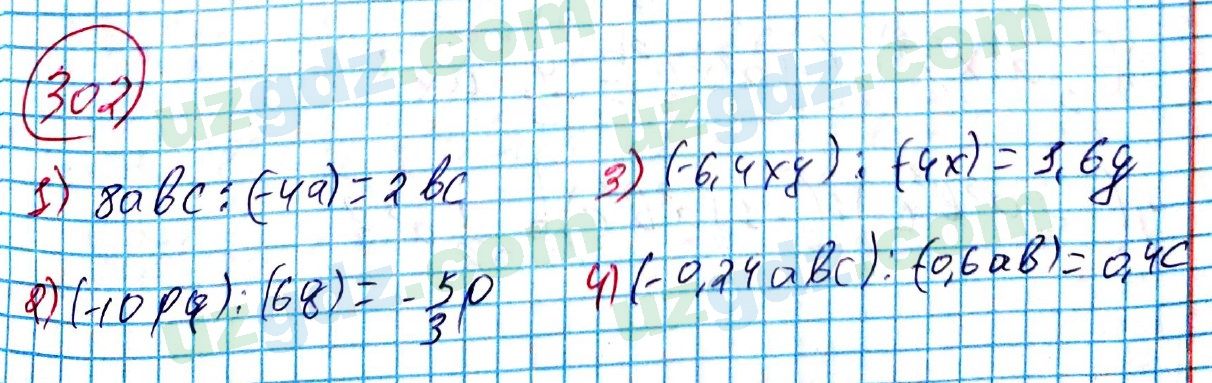 302)
1) 8abc : (-4a) = 2bc
3) (-6,4xy) : (-4x) = 1,6y
2) (-10pq) : (6q) = -5/3 p
4) (-0,24abc) : (-0,6ab) = 0,4c
uzgdz.com
uzgdz.com
uzgdz.com
uzgdz.com